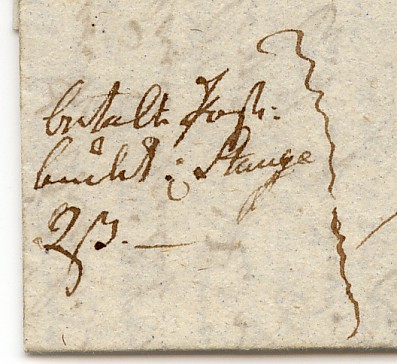 betalt Post:
budet i Stange
2 ß. —